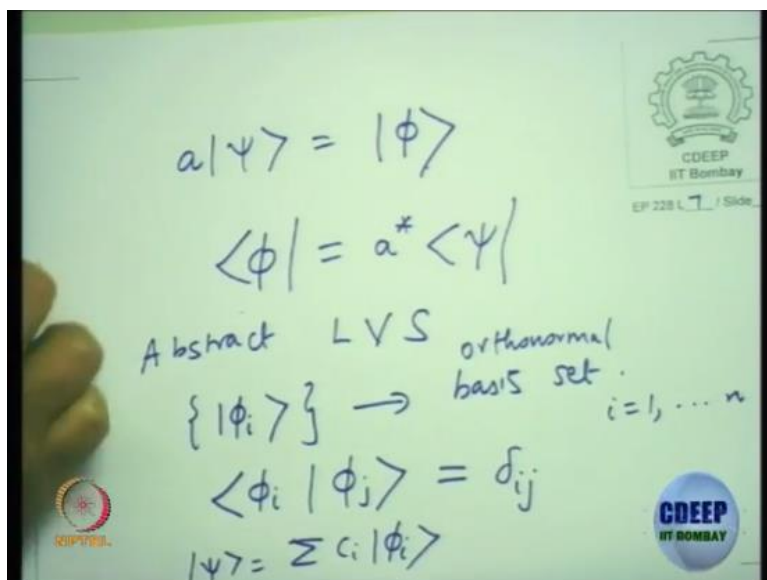 a|ψ> = |ϕ>
CDEEP
IIT Bombay
EP 228 L 7 / Slide
<ϕ| = a* <ψ|
Abstract LVS
{|ϕi>} → orthonormal basis set. i=1, ... n
<ϕi|ϕj> = δij
|ψ> = Σ ci|ϕi>
NPTEL
CDEEP
IIT BOMBAY